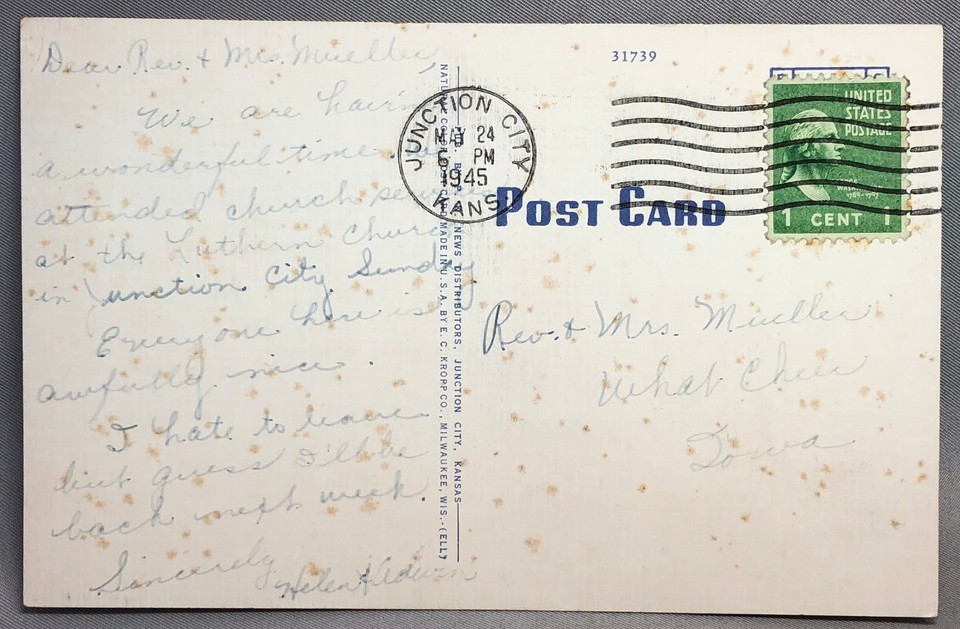 Dear Rev. & Mrs. Mueller,
We are havin
a wonderful time.
attended church services
at the Luthern Church
in Junction City Sunday
Everyone here is
awfully nice.
I hate to leave
but guess I'll be
back next week.
Sincerely
Helen & Edwin
NATURAL COLOR POST CARD MADE IN U.S.A. BY E. C. KROPP CO., MILWAUKEE, WIS.-(ELL)
NEWS DISTRIBUTORS, JUNCTION CITY, KANSAS
31739
JUNCTION CITY
MAY 24
PM
1945
KANS
POST CARD
UNITED
STATES
POSTAGE
1 CENT 1
Rev. & Mrs. Mueller
What Cheer
Iowa